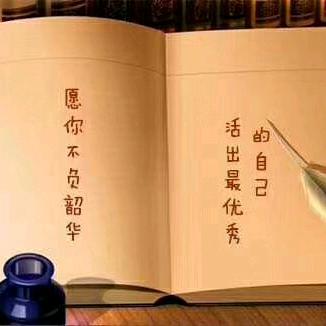 愿你不负韶华
活出最优秀
的自己